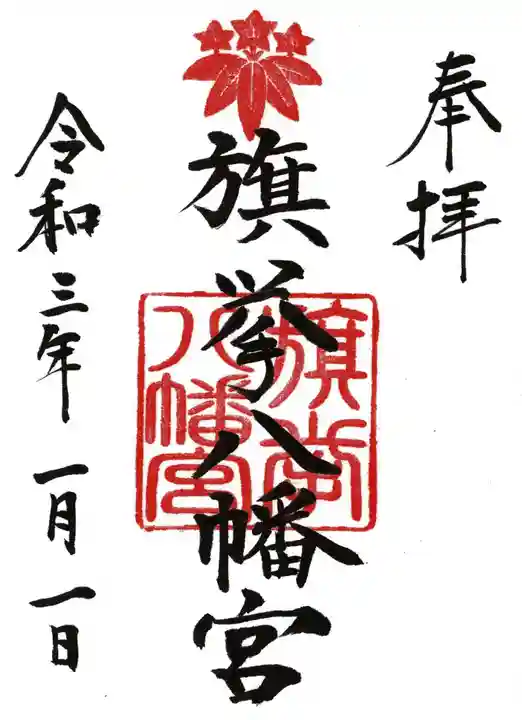 奉拝
旗挙八幡宮
旗挙八幡宮
令和三年 一月一日